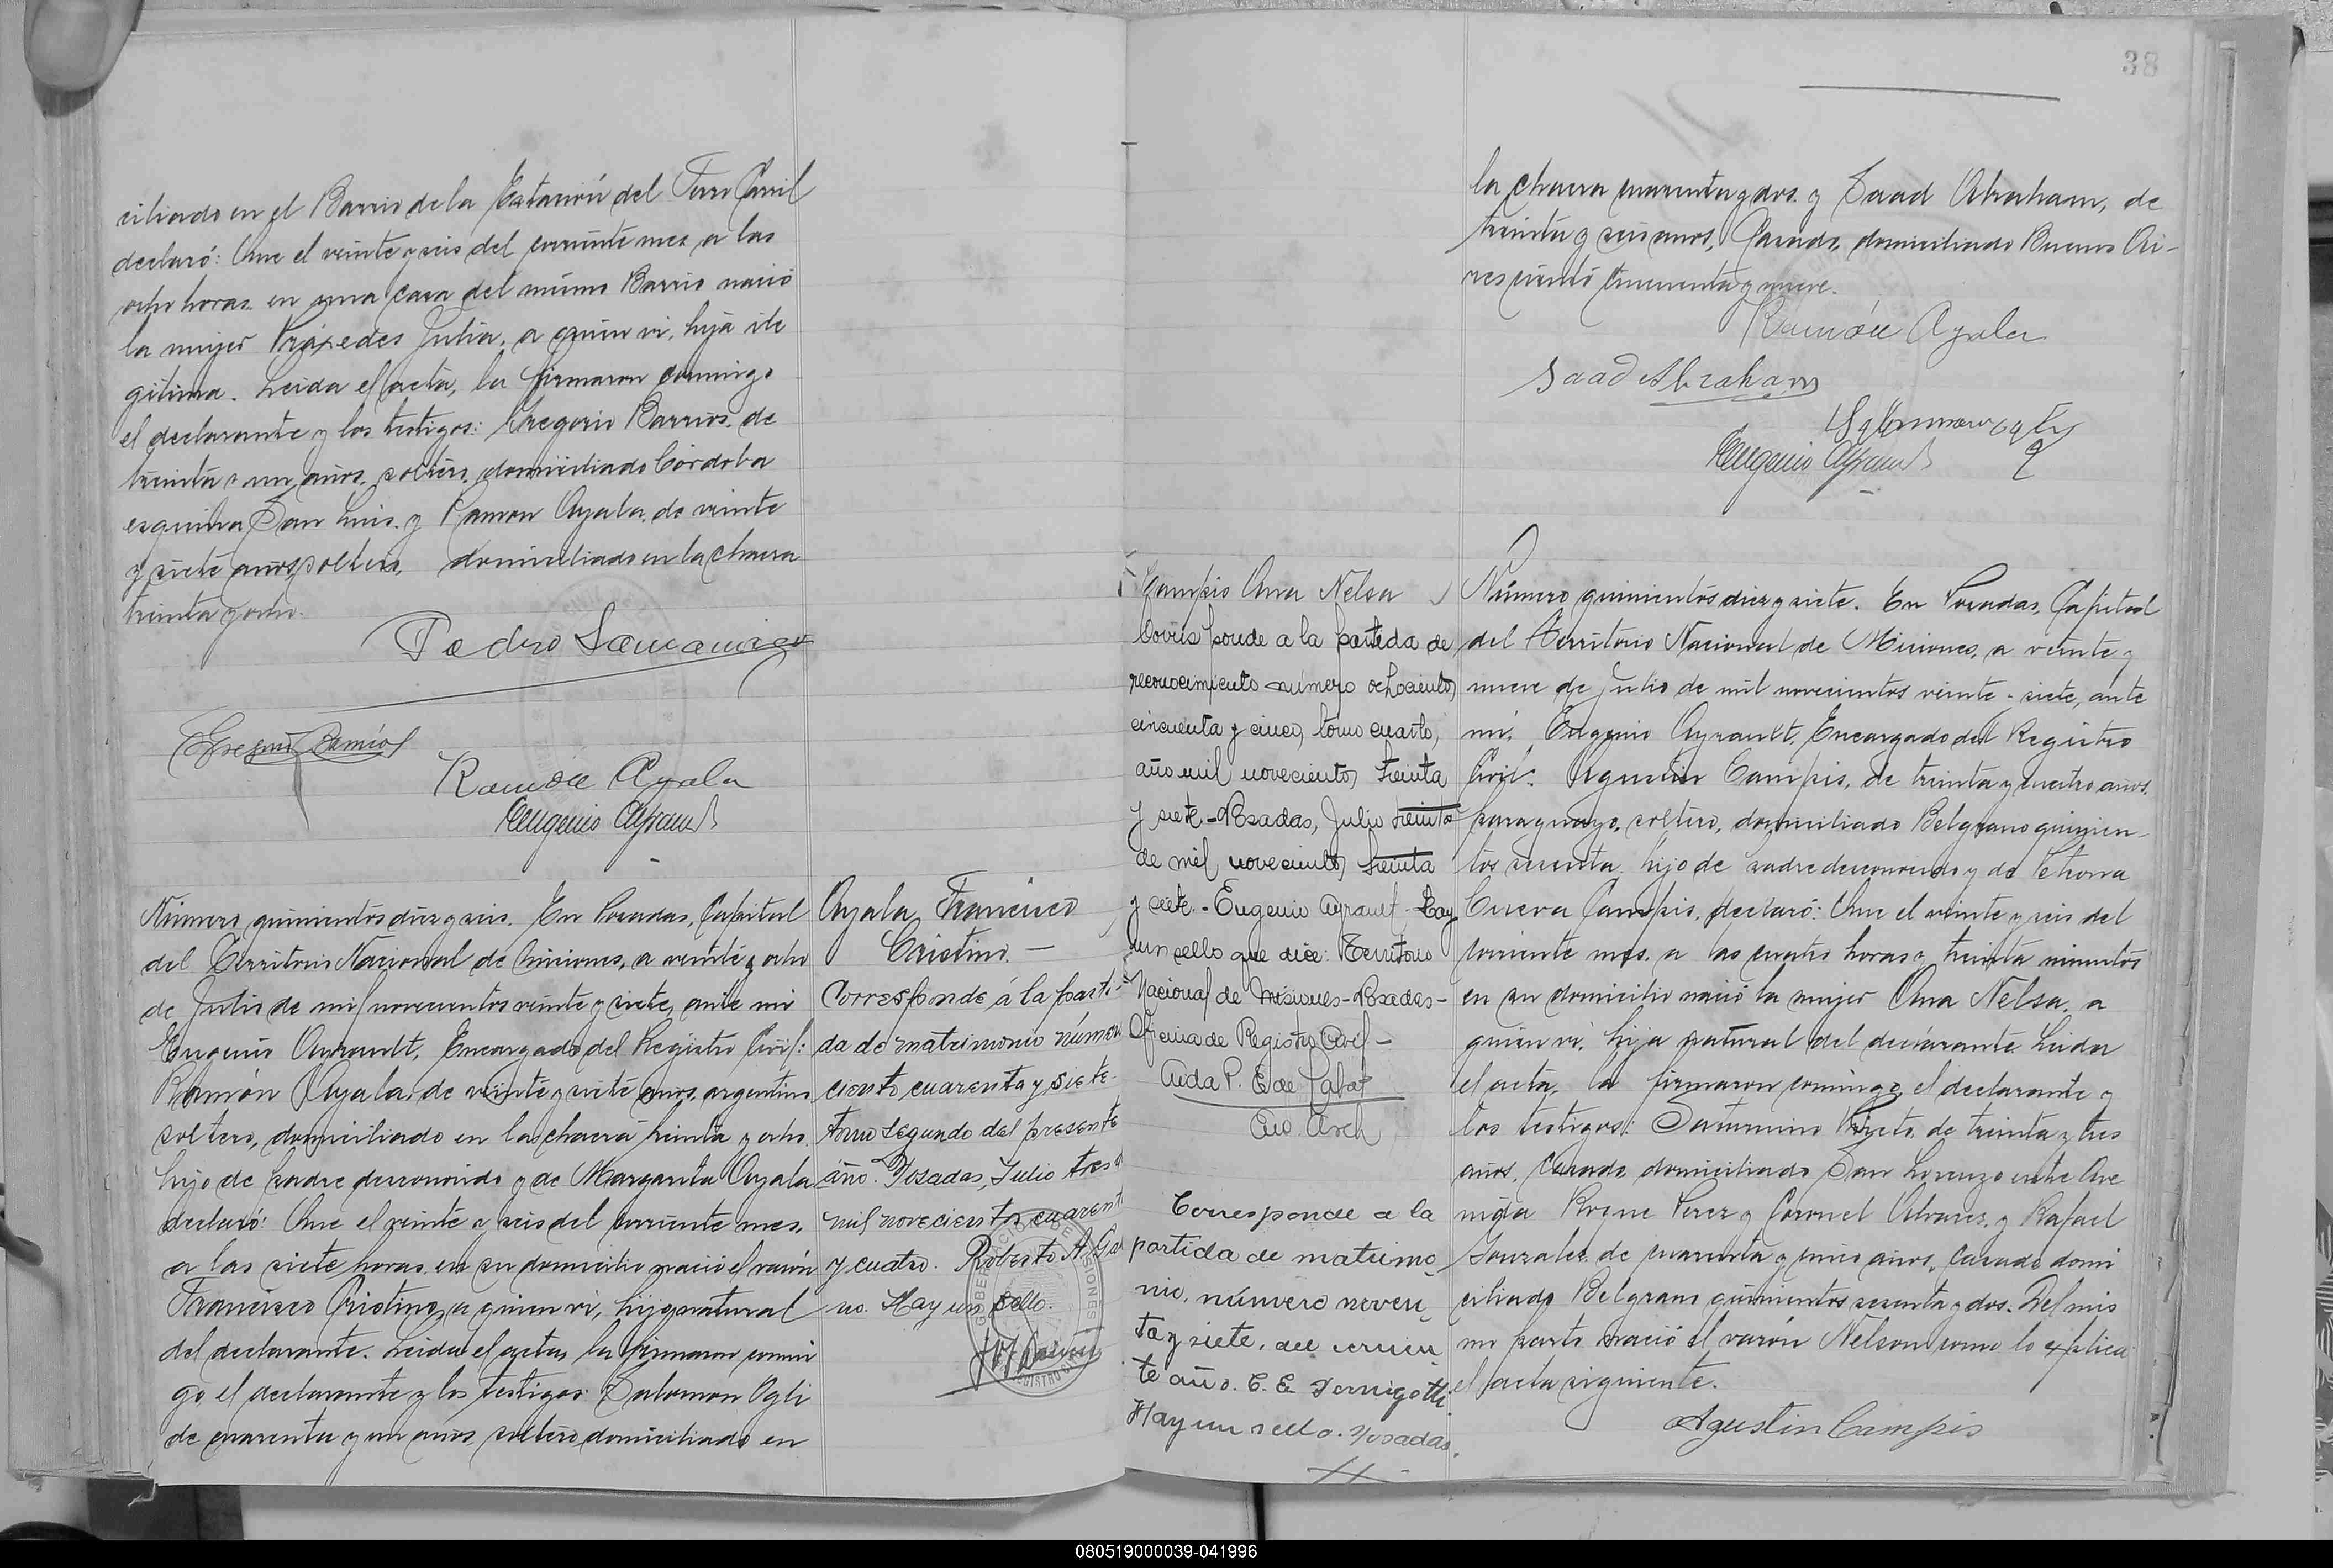 ciliado en el Barrio de la Estación del Ferro Carril
declaró: Que el veinte y seis del corriente mes a las
ocho horas en una casa del mismo Barrio nació
la mujer Práxedes Julia, a quien vi, hija le
gitima. Leida el acta, la firmaron conmigo
el declarante y los testigos: Gregorio Barrios, de
treinta y un años, soltero, domiciliado Córdoba
esquina San Luis y Ramon Ayala de veinte
y siete años, soltero, domiciliado en la chacra
treinta y ocho.
Pedro Samaniego
Ramón Ayala
Eugenio Ayrault
Número quinientos diez y seis. En Posadas, Capital
del Territorio Nacional de Misiones, a veinte y ocho
de Julio de mil novecientos veinte y siete, ante mi
Eugenio Ayrault, Encargado del Registro Civil:
Ramón Ayala, de veinte y siete años, argentino
soltero, domiciliado en la chacra treinta y ocho,
hijo de padre desconocido y de Margarita Ayala
declaró: Que el veinte y seis del corriente mes,
a las siete horas en su domicilio nació el varón
Francisco Cristino, a quien vi, hijo natural
del declarante. Leida el acta, la firmaron conmi
go, el declarante y los testigos: Salomon Ogli
de cuarenta y un años, soltero domiciliado en
Ayala Francisco
Cristino.—
Corresponde á la parti-
da de matrimonio número
ciento cuarenta y siete-
tomo segundo del presente
año. Posadas, Julio tres
mil novecientos cuarenta
y cuatro. Roberto A. Ga
no. Hay un sello.
38
la chacra cuarenta y dos y Saad Abraham, de
treinta y seis años, Casado, domiciliado Buenos Ai-
res ciento cincuenta y nueve.
Ramón Ayala
Saad Abraham
Eugenio Ayrault
Campis Ana Nelsa
Corresponde a la partida de
reconocimiento número ochocientos
cincuenta y cinco, tomo cuarto,
año mil novecientos treinta
y siete - Posadas, Julio treinta
de mil novecientos treinta
y siete.- Eugenio Ayrault - Hay
un sello que dice: Territorio
Nacional de Misiones-Posadas-
Oficina de Registro Civil -
Aida P. E. de
Corresponde a la
partida de matrimo-
nio, número noven-
ta y siete, del corrien-
te año. C. E. Pernigotti
Hay un sello. Posadas.
Número quinientos diez y siete. En Posadas, Capital
del Territorio Nacional de Misiones, a veinte y
nueve de Julio de mil novecientos veinte y siete, ante
mi, Eugenio Ayrault, Encargado del Registro
Civil: Agustin Campis, de treinta y cuatro años,
paraguayo, soltero, domiciliado Belgrano quinien-
tos sesenta, hijo de padre desconocido y de Petrona
Cueva Campis, declaró: Que el veinte y seis del
corriente mes, a las cuatro horas y treinta minutos
en su domicilio nació la mujer Ana Nelsa, a
quien vi, hija natural del declarante. Leida
el acta, la firmaron conmigo, el declarante y
los testigos: Saturnino Prieto de treinta y tres
años, Casado, domiciliado San Lorenzo entre Ave
nida Roque Perez y Coronel Alvarez y Rafael
Gonzalez de cuarenta y cinco años, Casado domi
ciliado Belgrano quinientos sesenta y dos. Del mis
mo parto nació el varón Nelson como lo esplica
el acta siguiente.
Agustin Campis
080519000039-041996